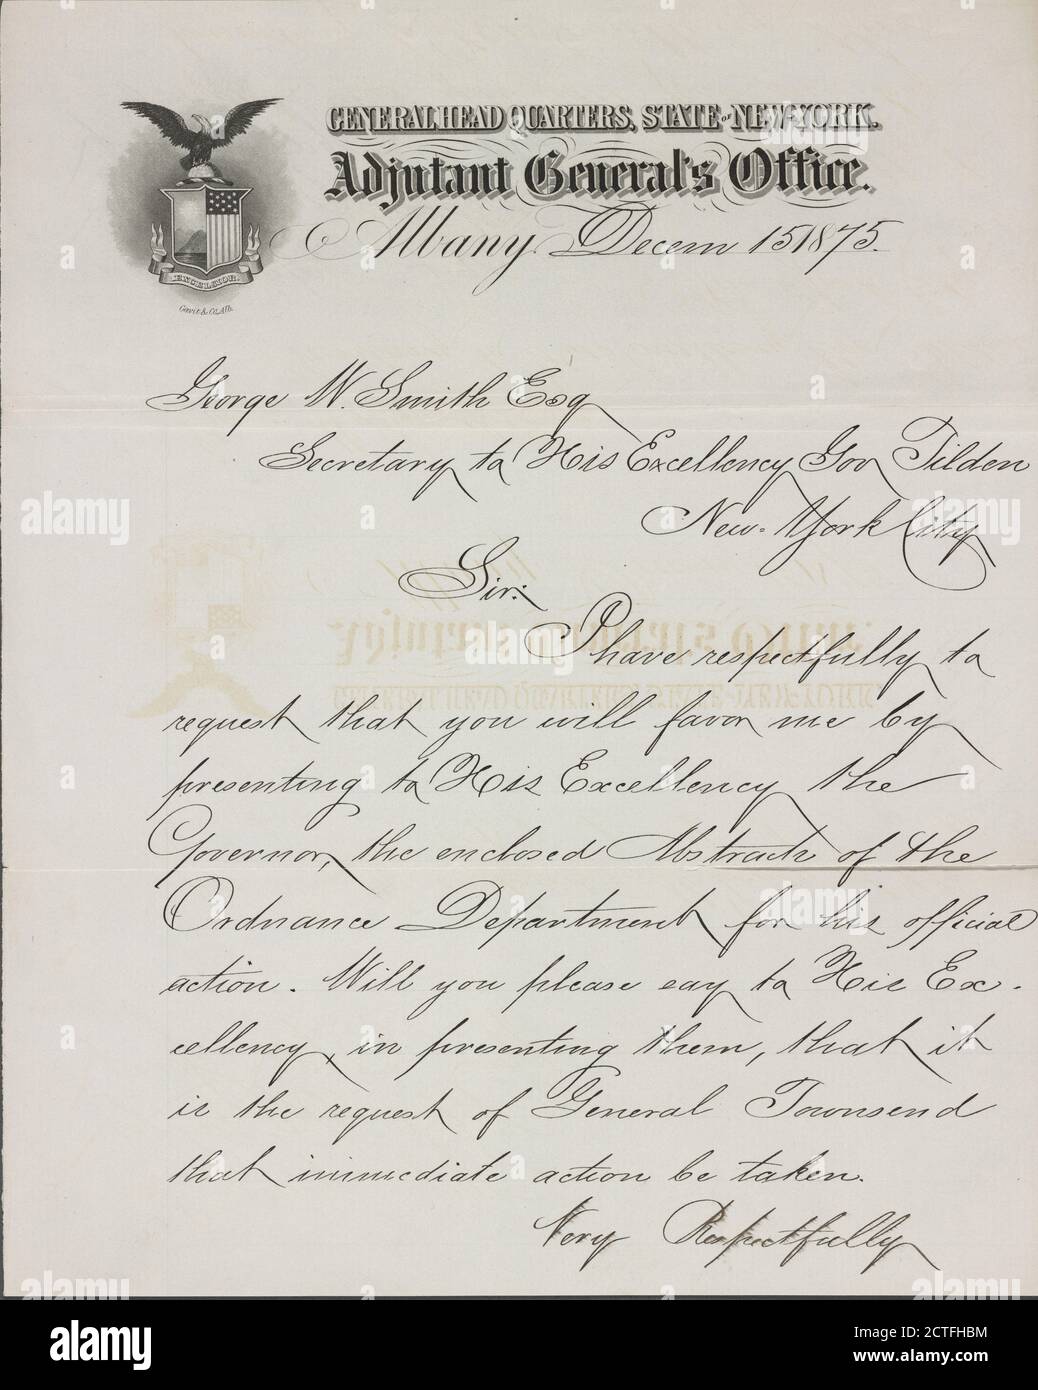 GENERAL HEAD QUARTERS, STATE OF NEW-YORK.
Adjutant General's Office.
Albany, Decem 15 1875.
EXCELSIOR.
Gavit & Co. Alb.
George W. Smith Esq
Secretary to His Excellency Gov Tilden
New-York City
Sir:
I have respectfully to
request that you will favor me by
presenting to His Excellency the
Governor, the enclosed Abstracts of the
Ordnance Department for his official
action. Will you please say to His Ex-
cellency, in presenting them, that it
is the request of General Townsend
that immediate action be taken.
Very Respectfully
alamy
Image ID: 2CTFHBM
www.alamy.com